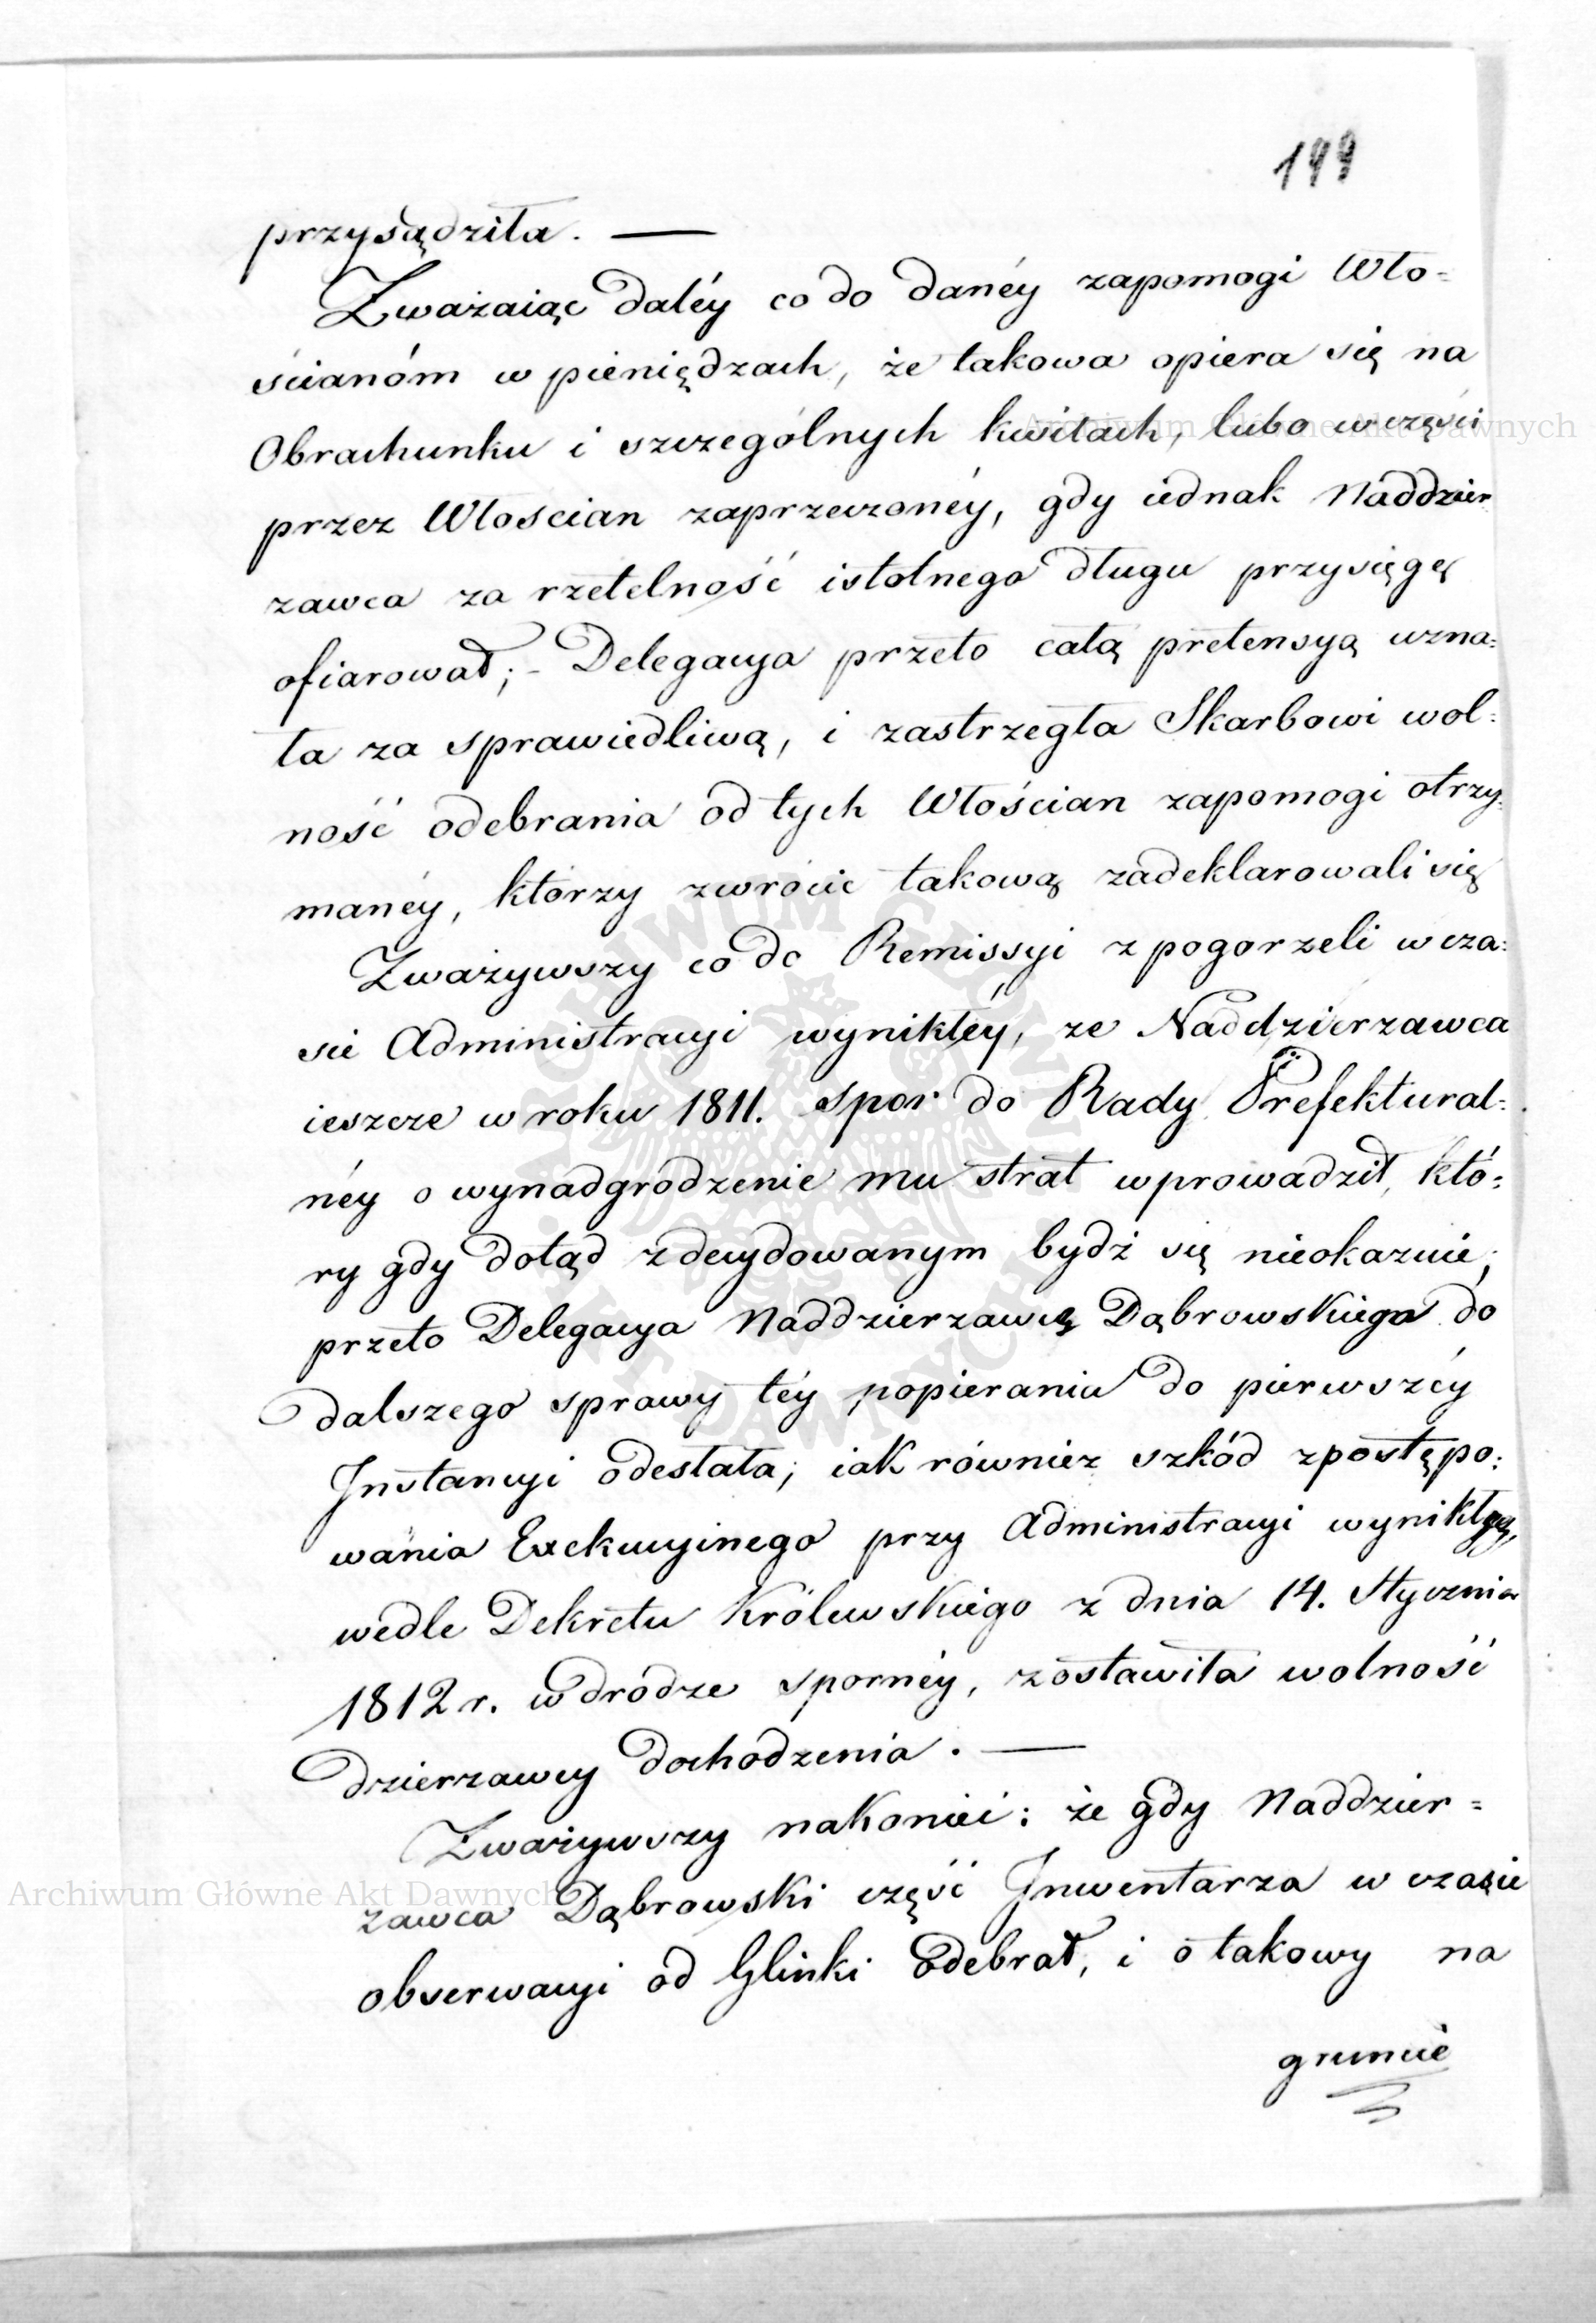 199
przysądziła. —
Zważaiąc daléy co do danéy zapomogi Wło=
ścianóm w pieniędzach, że takowa opiera się na
Obrachunku i szczególnych kwitach, lubo w części
przez Włoscian zaprzeczonéy, gdy iednak Naddzier
zawca za rzetelność istotnego długu przysięgę
ofiarował; - Delegacya przeto całą pretensyą uzna=
ła za sprawiedliwą, i zastrzegła Skarbowi wol=
ność odebrania od tych Włościan zapomogi otrzy=
manéy, którzy zwrócic takową zadeklarowali się
Zważywszy co do Remissyi z pogorzeli w cza=
sie Administracyi wynikłéy, ze Naddzierzawca
ieszcze w roku 1811. spor do Rady Prefektural=
néy o wynadgrodzenie mu strat wprowadził, któ=
ry gdy dotąd zdecydowanym bydź się nieokazuie,
przeto Delegacya Naddzierzawcę Dąbrowskiego do
dalszego sprawy téy popierania do pierwszéy
Instancyi odesłała; iak równiez szkód z postępo=
wania Exekucyinego przy Administracyi wynikłyc̨h,
wedle Dekretu Królewskiego z dnia 14. Stycznia
1812 r. w drodze spornéy, zostawiła wolność
dzierzawcy dochodzenia. —
Zważywszy nakoniec: że gdy Naddzier=
zawca Dąbrowski część Inwentarza w czasie
obserwacyi od Glinki odebrał, i o takowy na
gruncie
Archiwum Główne Akt Dawnych
Archiwum Główne Akt Dawnych
ARCHIWUM GŁÓWNE AKT DAWNYCH